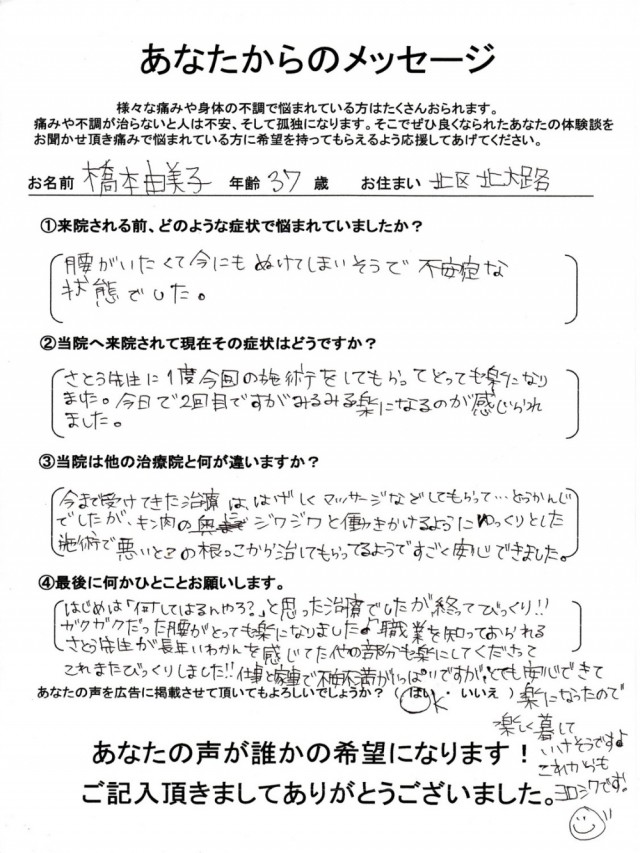 あなたからのメッセージ
様々な痛みや身体の不調で悩まれている方はたくさんおられます。
痛みや不調が治らないと人は不安、そして孤独になります。そこでぜひ良くなられたあなたの体験談を
お聞かせ頂き痛みで悩まれている方に希望を持ってもらえるよう応援してあげてください。
お名前 橋本由美子 年齢 37 歳 お住まい 北区北大路
①来院される前、どのような症状で悩まれていましたか？
腰がいたくて今にもぬけてしまいそうで不安定な
状態でした。
②当院へ来院されて現在その症状はどうですか？
さとう先生に1度今回の施術をしてもらってとっても楽になり
ました。今日で2回目ですがみるみる楽になるのが感じられ
ました。
③当院は他の治療院と何が違いますか？
今まで受けてきた治療は、はげしくマッサージなどしてもらって…というかんじ
でしたが、キン肉の奥にジワジワと働きかけるようにゆっくりとした
施術で悪いとこの根っこから治してもらってるようですごく安心できました。
④最後に何かひとことお願いします。
はじめは「何してはるんやろ？」と思った治療でしたが終ってびっくり!!
ガクガクだった腰がとっても楽になりました♪職業を知っておられる
さとう先生が長年いわかんを感じてた他の部分も楽にしてくださって
これまたびっくりしました!!仕事と家事で がいっぱいですが、とても安心できて
あなたの声を広告に掲載させて頂いてもよろしいでしょうか？（はい・いいえ）OK
楽になったので
楽しく暮して
いけそうですよ
これからも
ヨロシクです!
あなたの声が誰かの希望になります！
ご記入頂きましてありがとうございました。